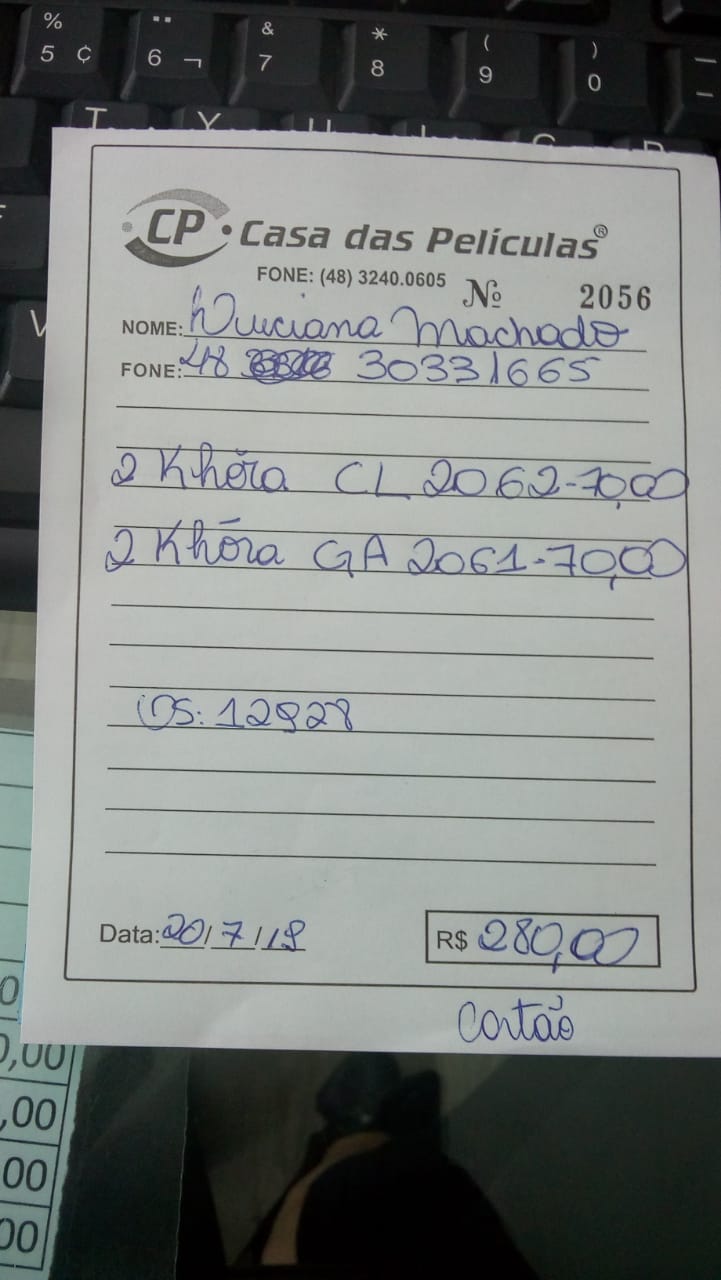 % 5 ¢
¨ 6 ¬
& 7
* 8
( 9
) 0
T Y
CP Casa das Películas®
FONE: (48) 3240.0605
Nº 2056
NOME: Luciana Machado
FONE: 48 30331665
2 Khóra CL 2062-70,00
2 Khóra GA 2061-70,00
OS: 12928
Data: 20/7/18
R$ 280,00
Cartão
,00
,00
00
00